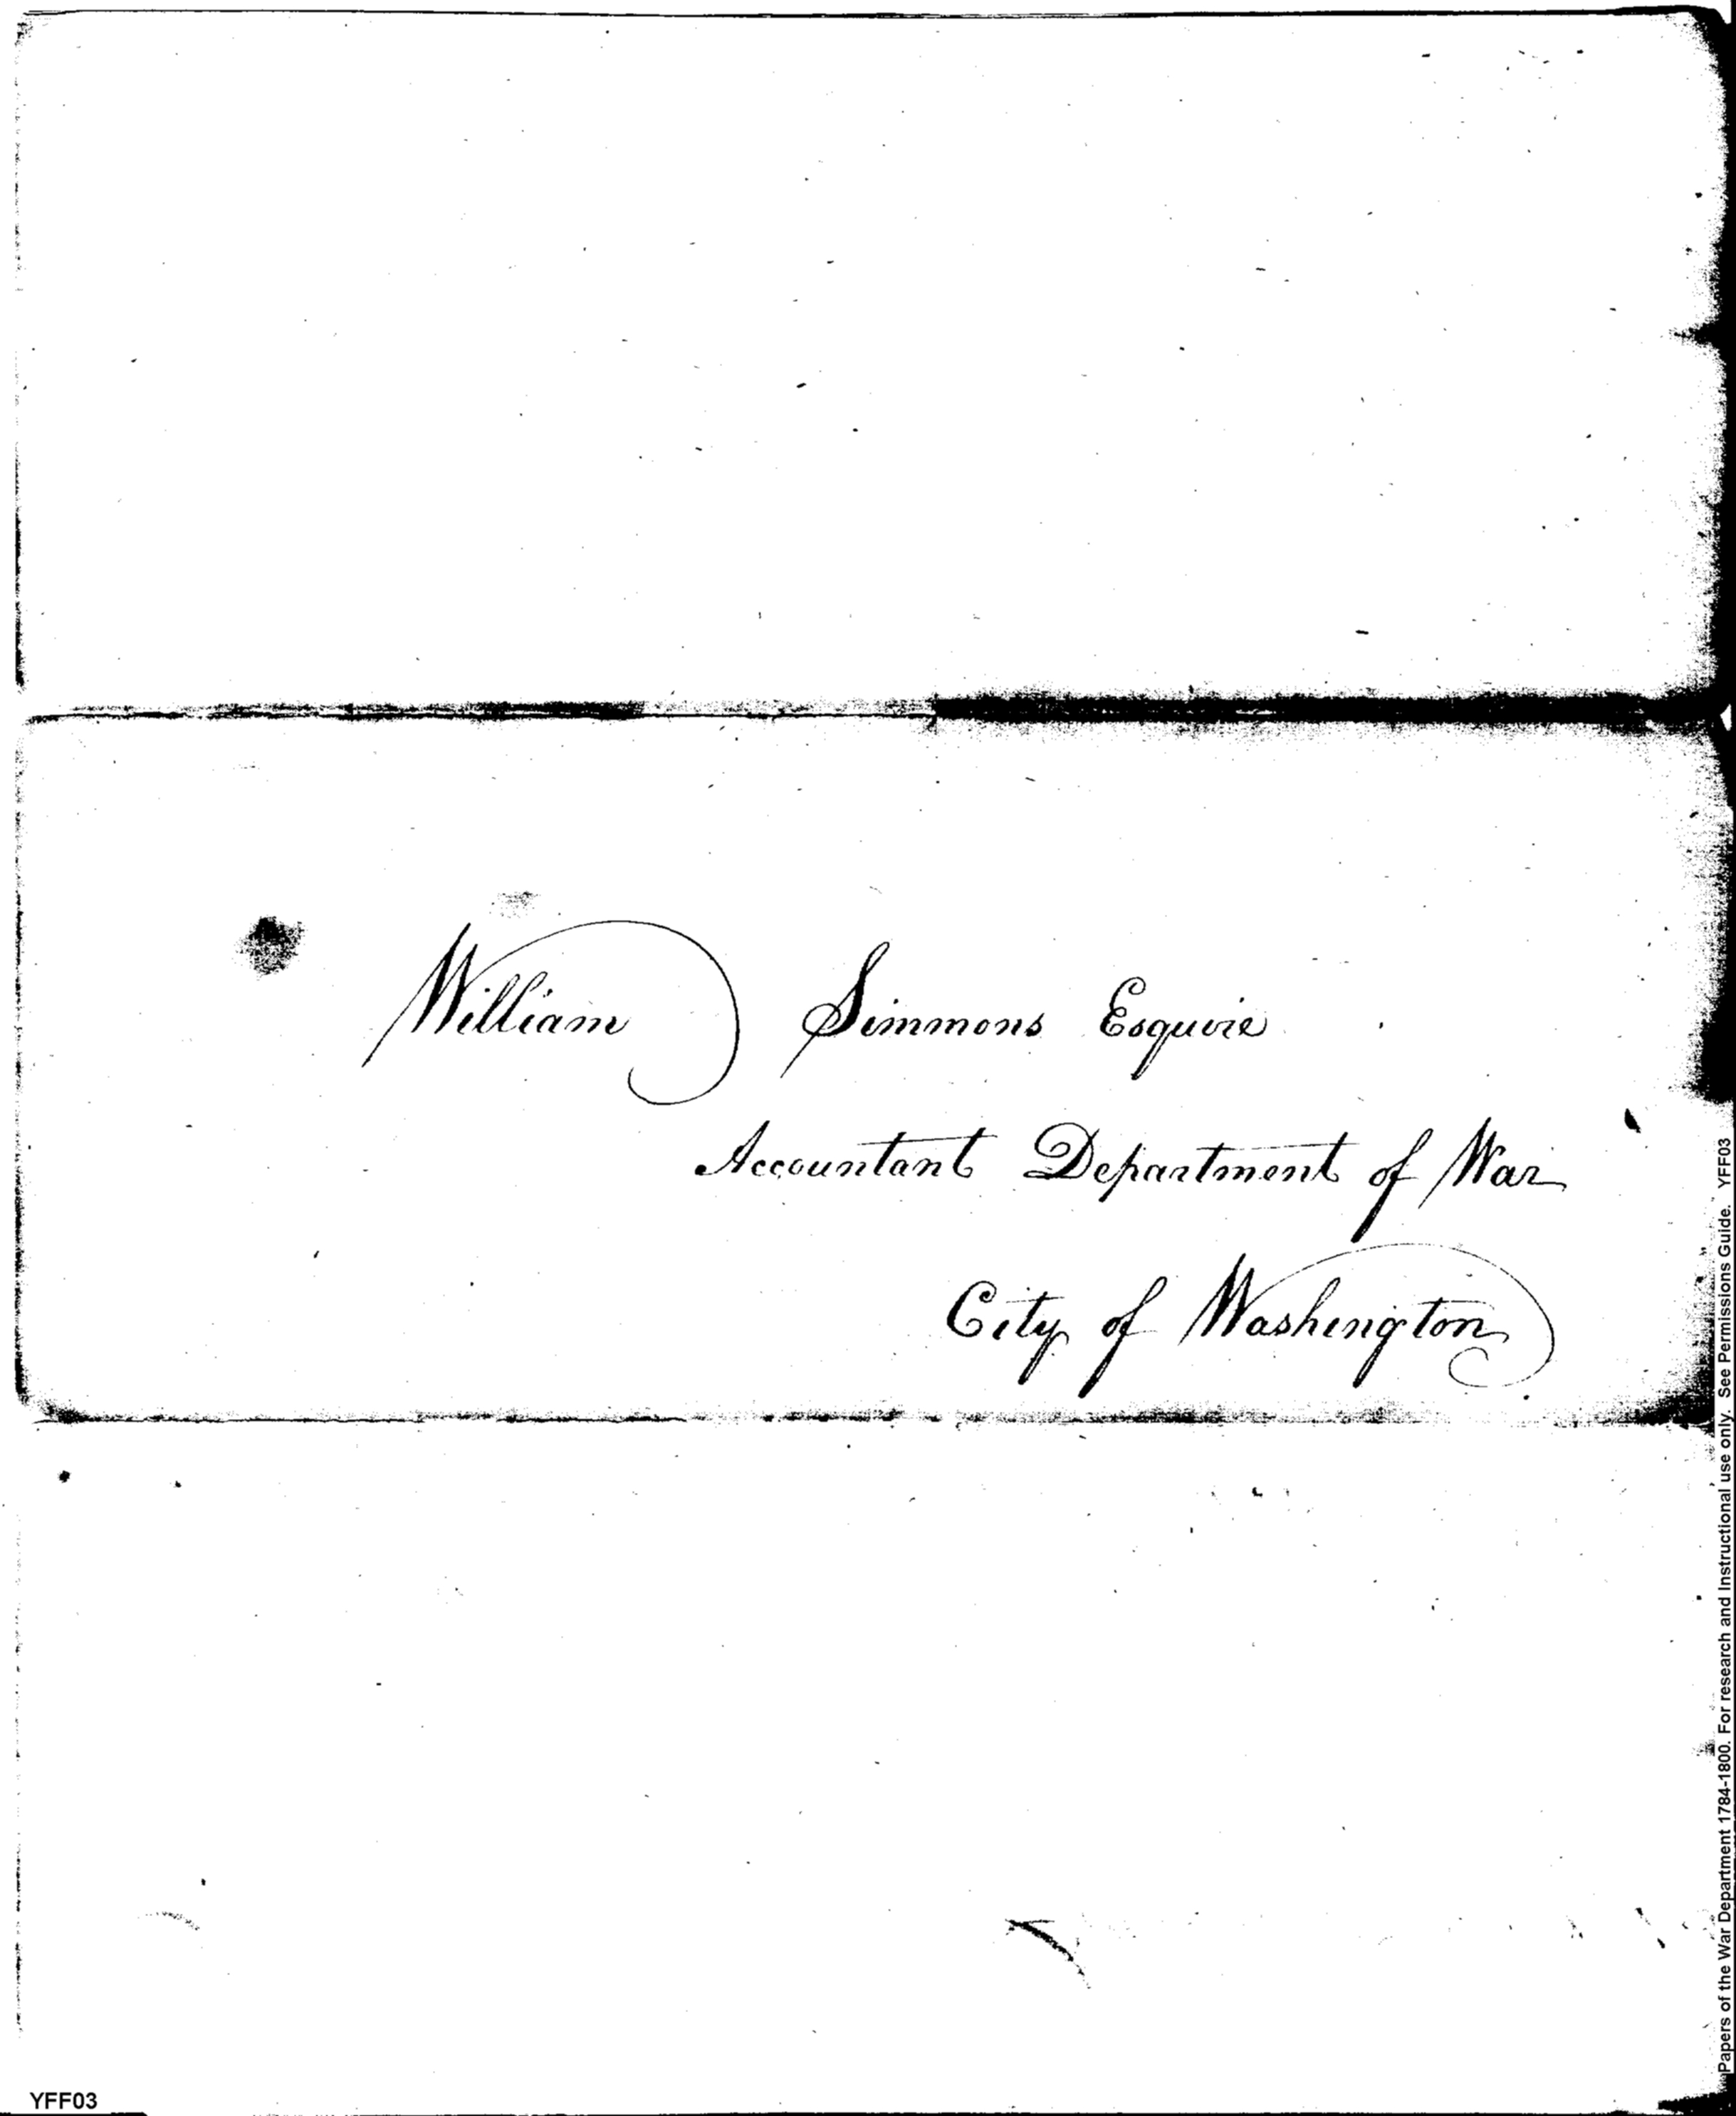 William Simmons Esquire
Accountant Department of War
City of Washington
Papers of the War Department 1784-1800. For research and Instructional use only. See Permissions Guide. YFF03
YFF03